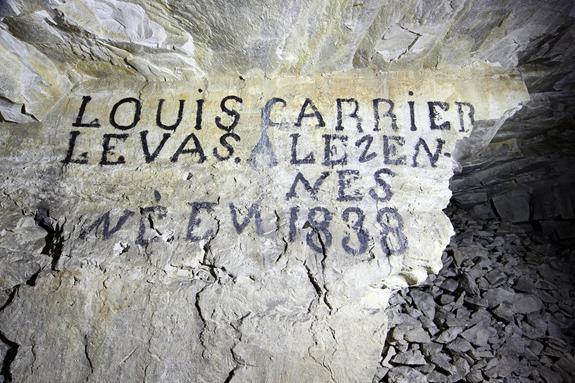 LOUIS CARRIER
LEVAS. A LEZEN-
NES
NÉ EN 1838